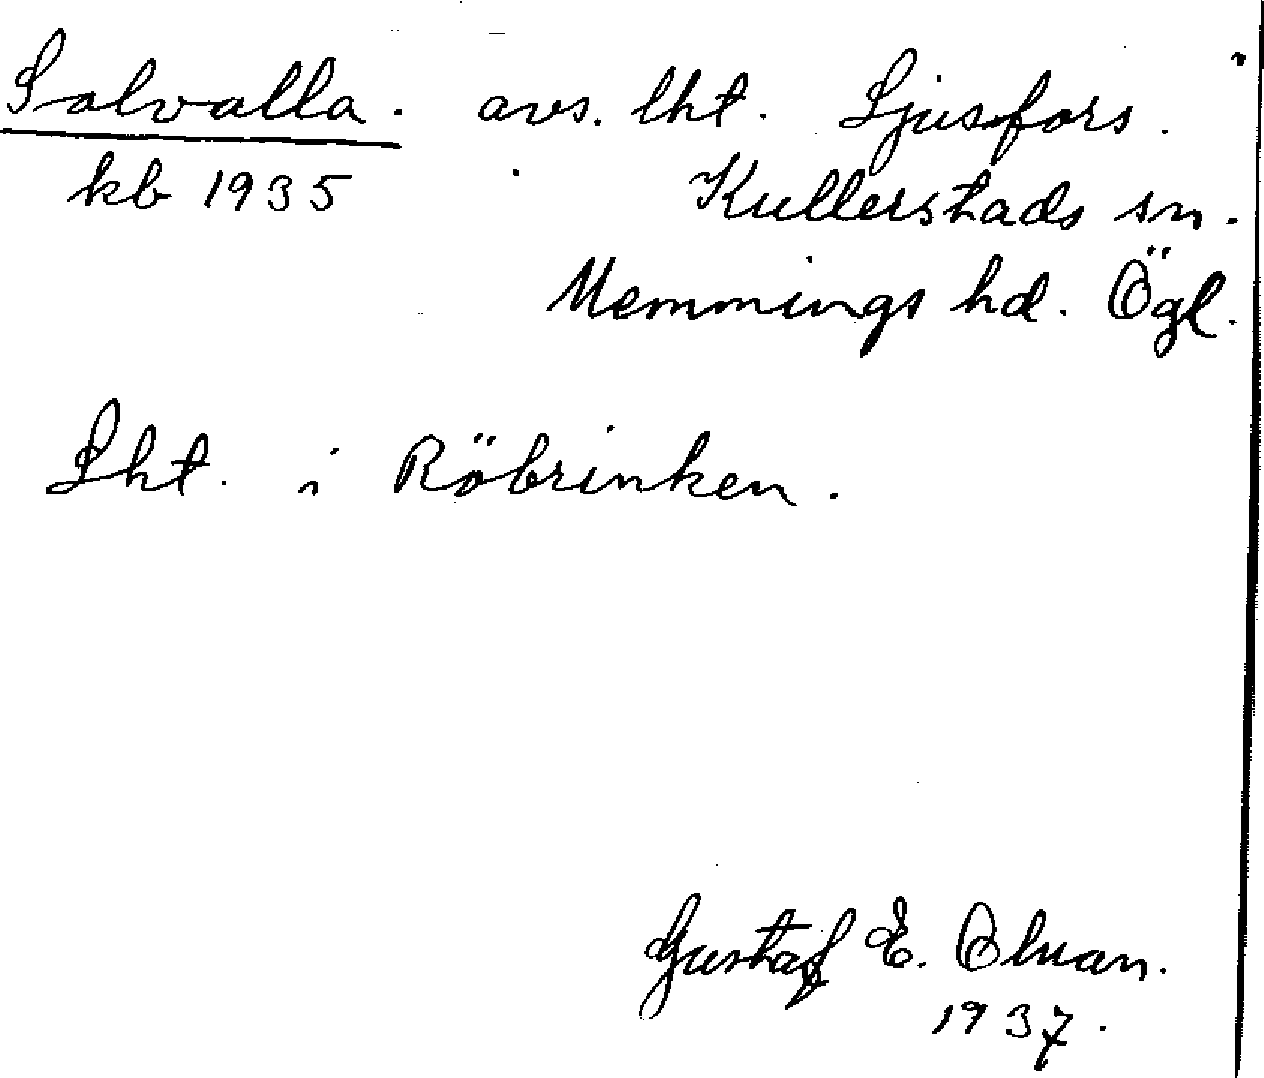 Solvalla. avs. lht. Ljusfors.
kb 1935 Kullerstads sn.
Memmings hd. Ögl.
Lht. i Röbrinken.
Gustaf E. Olson.
1937.